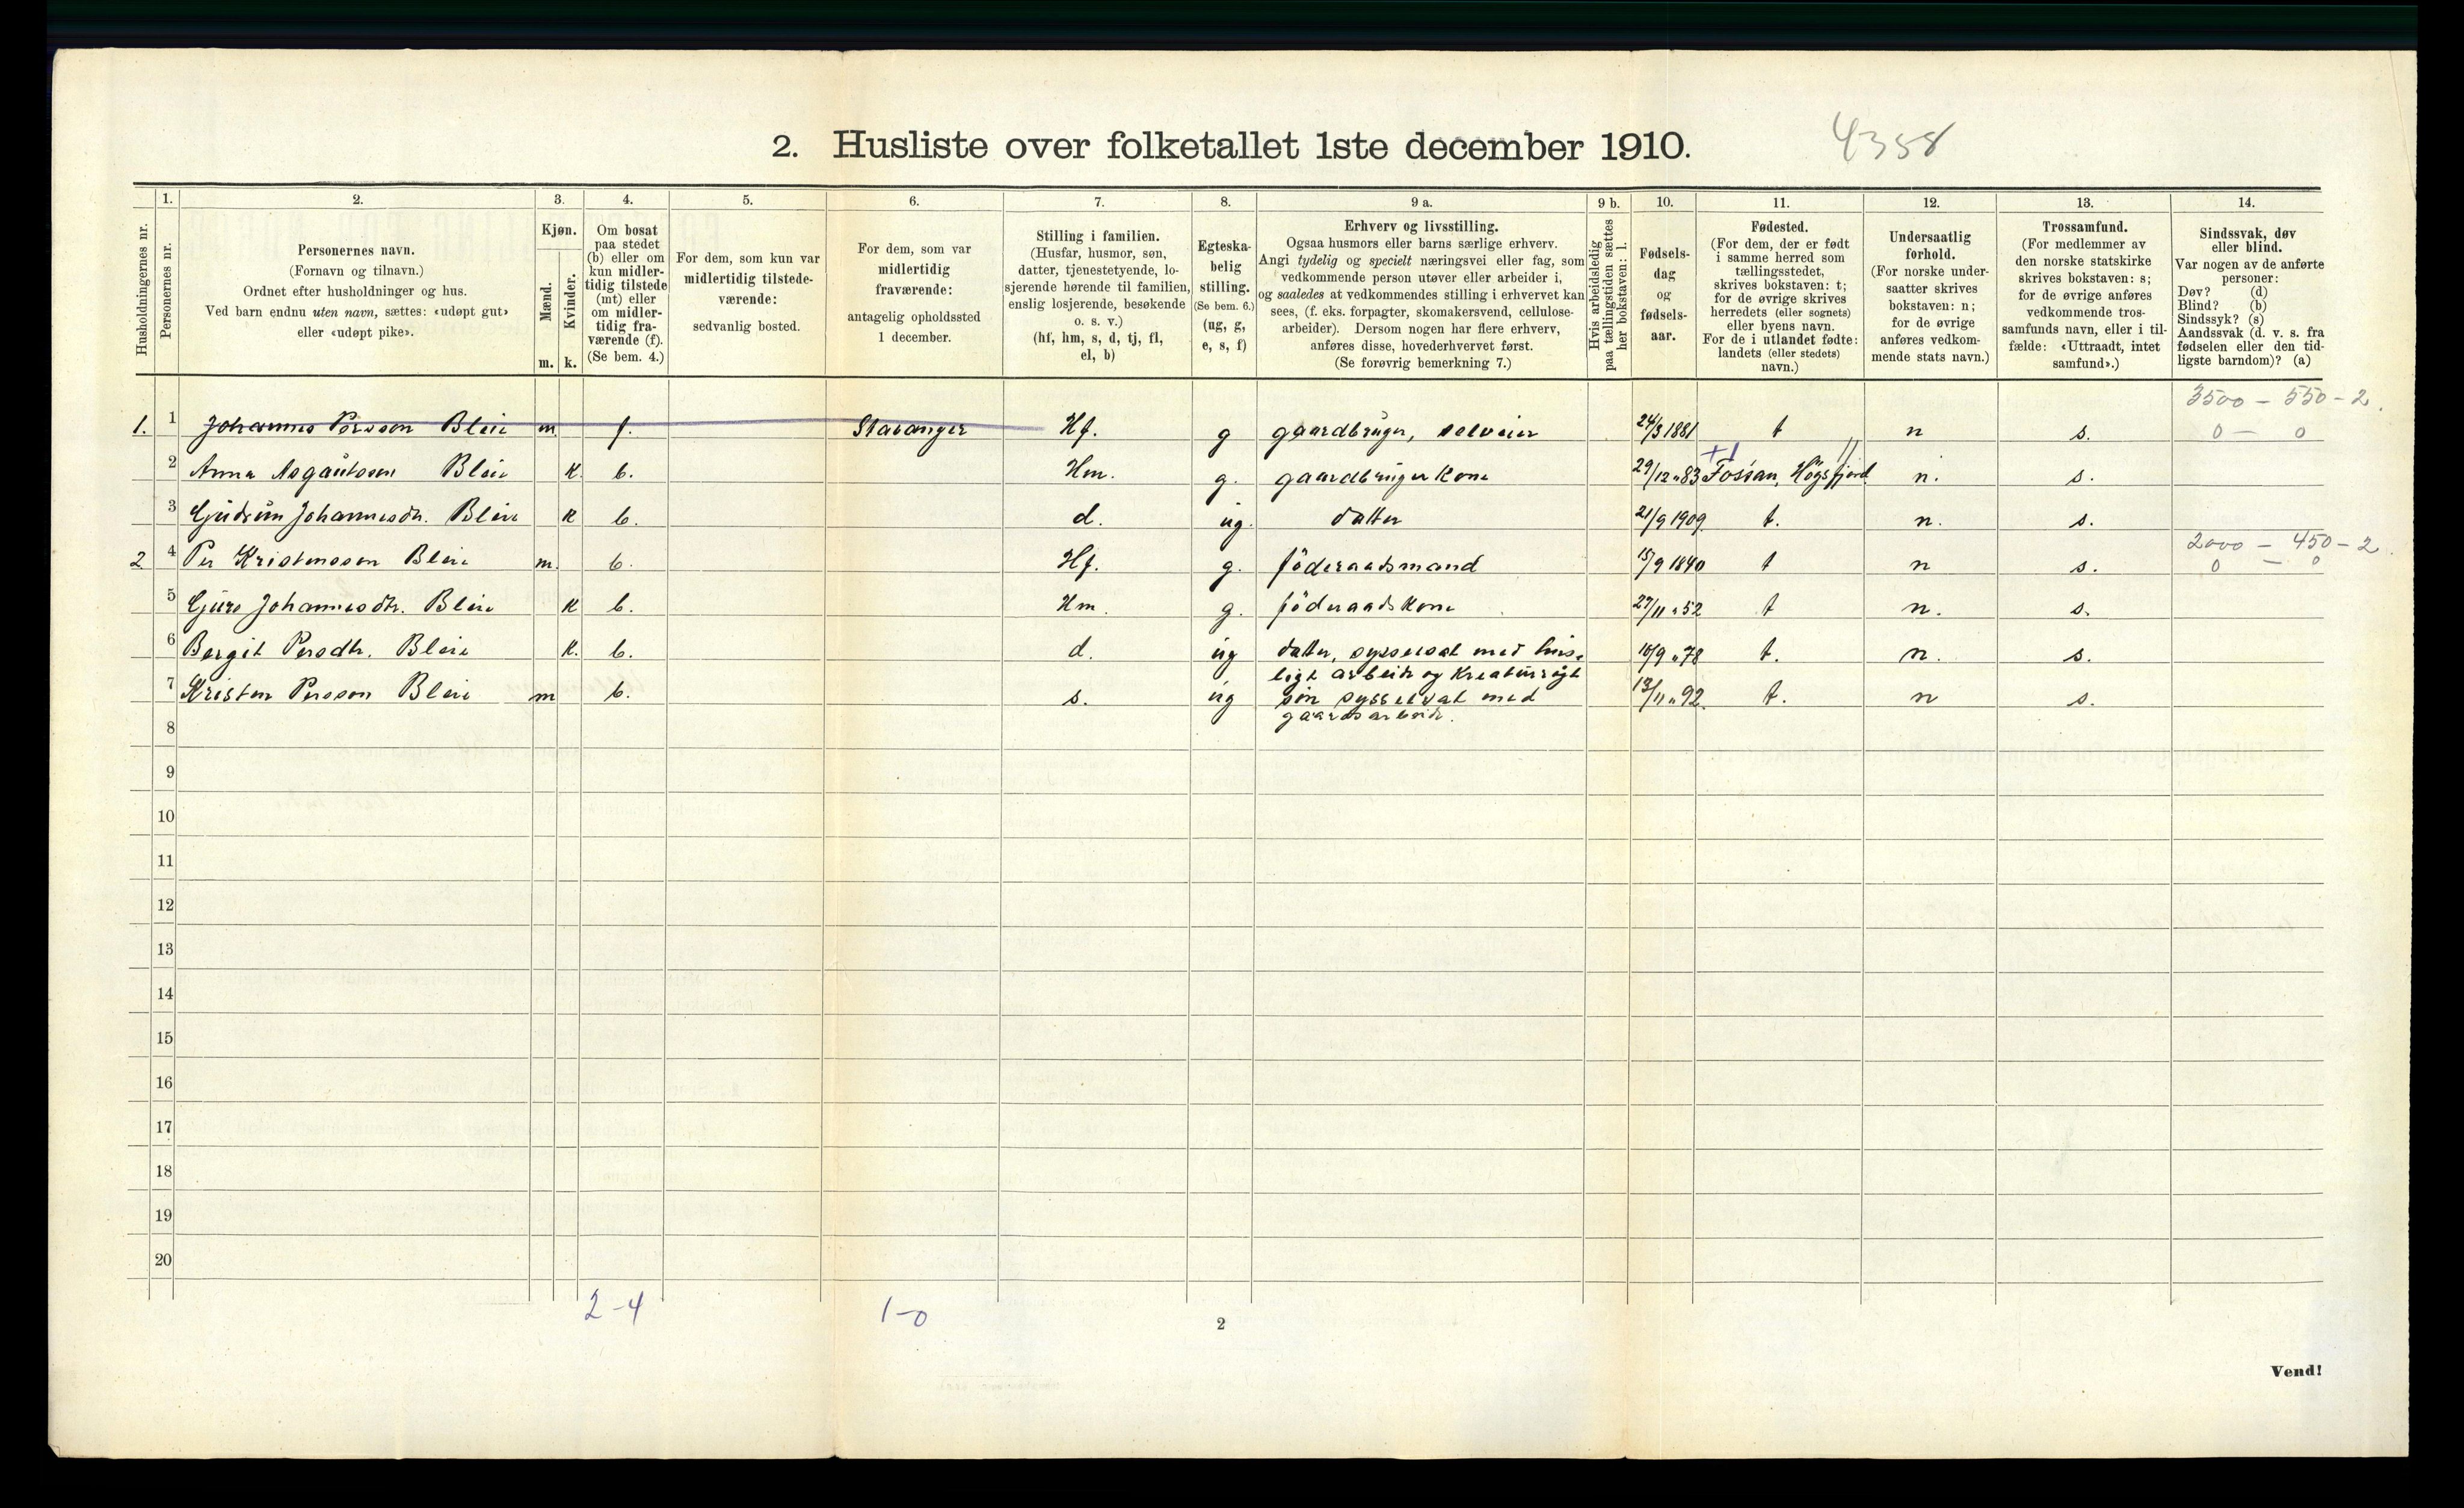 2. Husliste over folketallet 1ste december 1910.
4358
Husholdningernes nr.
1. Personernes nr.
2. Personernes navn.
(Fornavn og tilnavn.)
Ordnet efter husholdninger og hus.
Ved barn endnu uten navn, sættes: «udøpt gut»
eller «udøpt pike».
3. Kjøn.
Mænd. m.
Kvinder. k.
4. Om bosat
paa stedet
(b) eller om
kun midler-
tidig tilstede
(mt) eller
om midler-
tidig fra-
værende (f).
(Se bem. 4.)
5. For dem, som kun var
midlertidig tilstede-
værende:
sedvanlig bosted.
6. For dem, som var
midlertidig
fraværende:
antagelig opholdssted
1 december.
7. Stilling i familien.
(Husfar, husmor, søn,
datter, tjenestetyende, lo-
sjerende hørende til familien,
enslig losjerende, besøkende
o. s. v.)
(hf, hm, s, d, tj, fl,
el, b)
8. Egteska-
belig
stilling.
(Se bem. 6.)
(ug, g,
e, s, f)
9 a. Erhverv og livsstilling.
Ogsaa husmors eller barns særlige erhverv.
Angi tydelig og specielt næringsvei eller fag, som
vedkommende person utøver eller arbeider i,
og saaledes at vedkommendes stilling i erhvervet kan
sees, (f. eks. forpagter, skomakersvend, cellulose-
arbeider). Dersom nogen har flere erhverv,
anføres disse, hovederhvervet først.
(Se forøvrig bemerkning 7.)
9 b. Hvis arbeidsledig
paa tællingstiden sættes
her bokstaven: l.
10. Fødsels-
dag
og
fødsels-
aar.
11. Fødested.
(For dem, der er født
i samme herred som
tællingsstedet,
skrives bokstaven: t;
for de øvrige skrives
herredets (eller sognets)
eller byens navn.
For de i utlandet fødte:
landets (eller stedets)
navn.)
12. Undersaatlig
forhold.
(For norske under-
saatter skrives
bokstaven: n;
for de øvrige
anføres vedkom-
mende stats navn.)
13. Trossamfund.
(For medlemmer av
den norske statskirke
skrives bokstaven: s;
for de øvrige anføres
vedkommende tros-
samfunds navn, eller i til-
fælde: «Uttraadt, intet
samfund».)
14. Sindssvak, døv
eller blind.
Var nogen av de anførte
personer:
Døv? (d)
Blind? (b)
Sindssyk? (s)
Aandssvak (d. v. s. fra
fødselen eller den tid-
ligste barndom)? (a)
3500 - 550 - 2.
1. 1 Johannes Persson Bleie m. f. Stavanger Hf. g gaardbruger, selveier 24/3 1881 t n s. 0 - 0
+1
2 Anna Asgautsson Bleie K. b. Hm. g. gaardbrugerkone 29/12 "83 Fossan, Högsfjord n. s.
3 Gjudrun Johannesdtr. Bleie K b. d. ug. datter 21/9 1909. t. n. s.
2000 - 450 - 2.
2 4 Per Kristensson Bleie m. b. Hf. g. föderaadsmand 15/9 1840 t n s. 0 - 0
5 Gjuro Johannesdtr. Bleie K b. Hm. g. föderaadskone 27/11 "52 t n. s.
6 Bergit Persdtr. Bleie K. b. d. ug datter, sysselsat med hus-
ligt arbeide og Kreaturrögt 16/9 "78 t. n. s.
7 Kristen Persson Bleie m b. s. ug sön sysselsat med
gaardsarbeide. 13/11 "92. t. n s.
8
9
10
11
12
13
14
15
16
17
18
19
20
2-4 1-0
2
Vend!